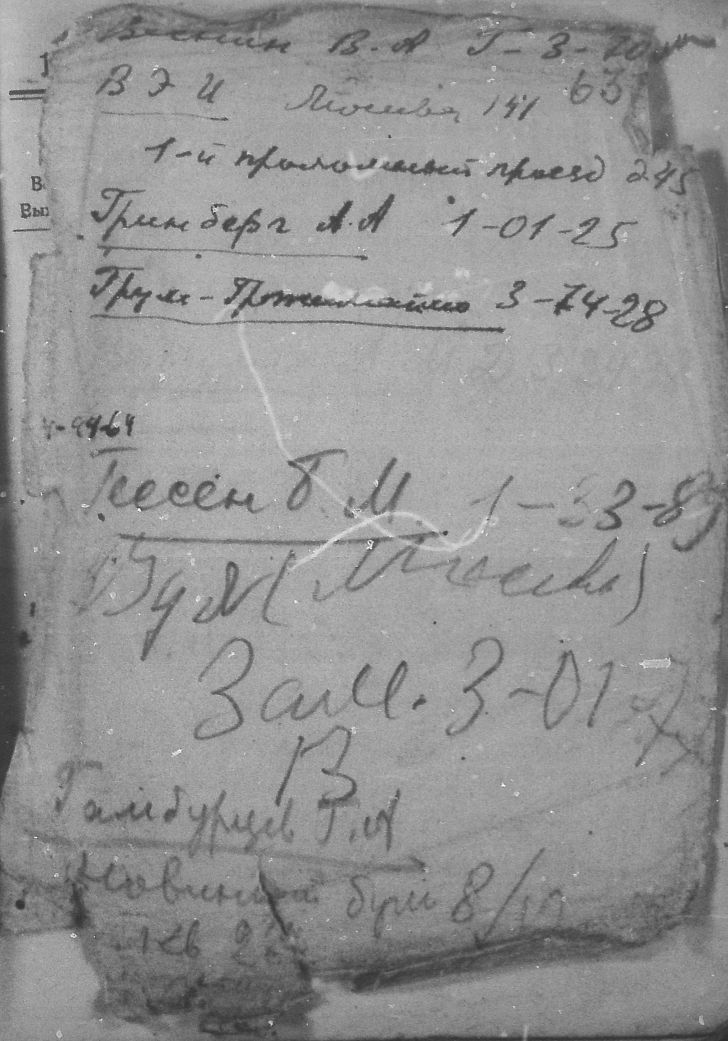 В. А. Г-3-70
ВЭИ Москва 141 63
1-й проломный проезд 245
Гринберг А.А 1-01-25
Грум-Гржимайло 3-74-28
Гессен Б М 1-33-8
(Москва)
Зам. 3-01
В
Гамбурцев Г.А
Новинский бул 8/10
кв 22